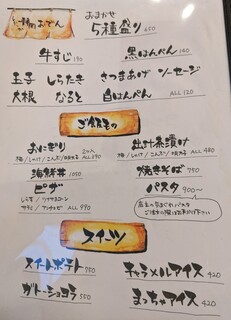 おでん
おまかせ
5種盛り 650
牛すじ 190
黒はんぺん 160
玉子 しらたき さつまあげ ソーセージ
大根 なると 白はんぺん ALL 120
ご飯もの
おにぎり 2コ入
梅/しゃけ/こんぶ/明太子 ALL 290
出汁茶漬け
梅/しゃけ/こんぶ/明太子 ALL 480
海鮮丼 1050
焼きそば 750
ピザ
パスタ 900〜
ALL 990
スイーツ
スイートポテト 750
キャラメルアイス 420
ガトーショコラ 550
まっちゃアイス 420